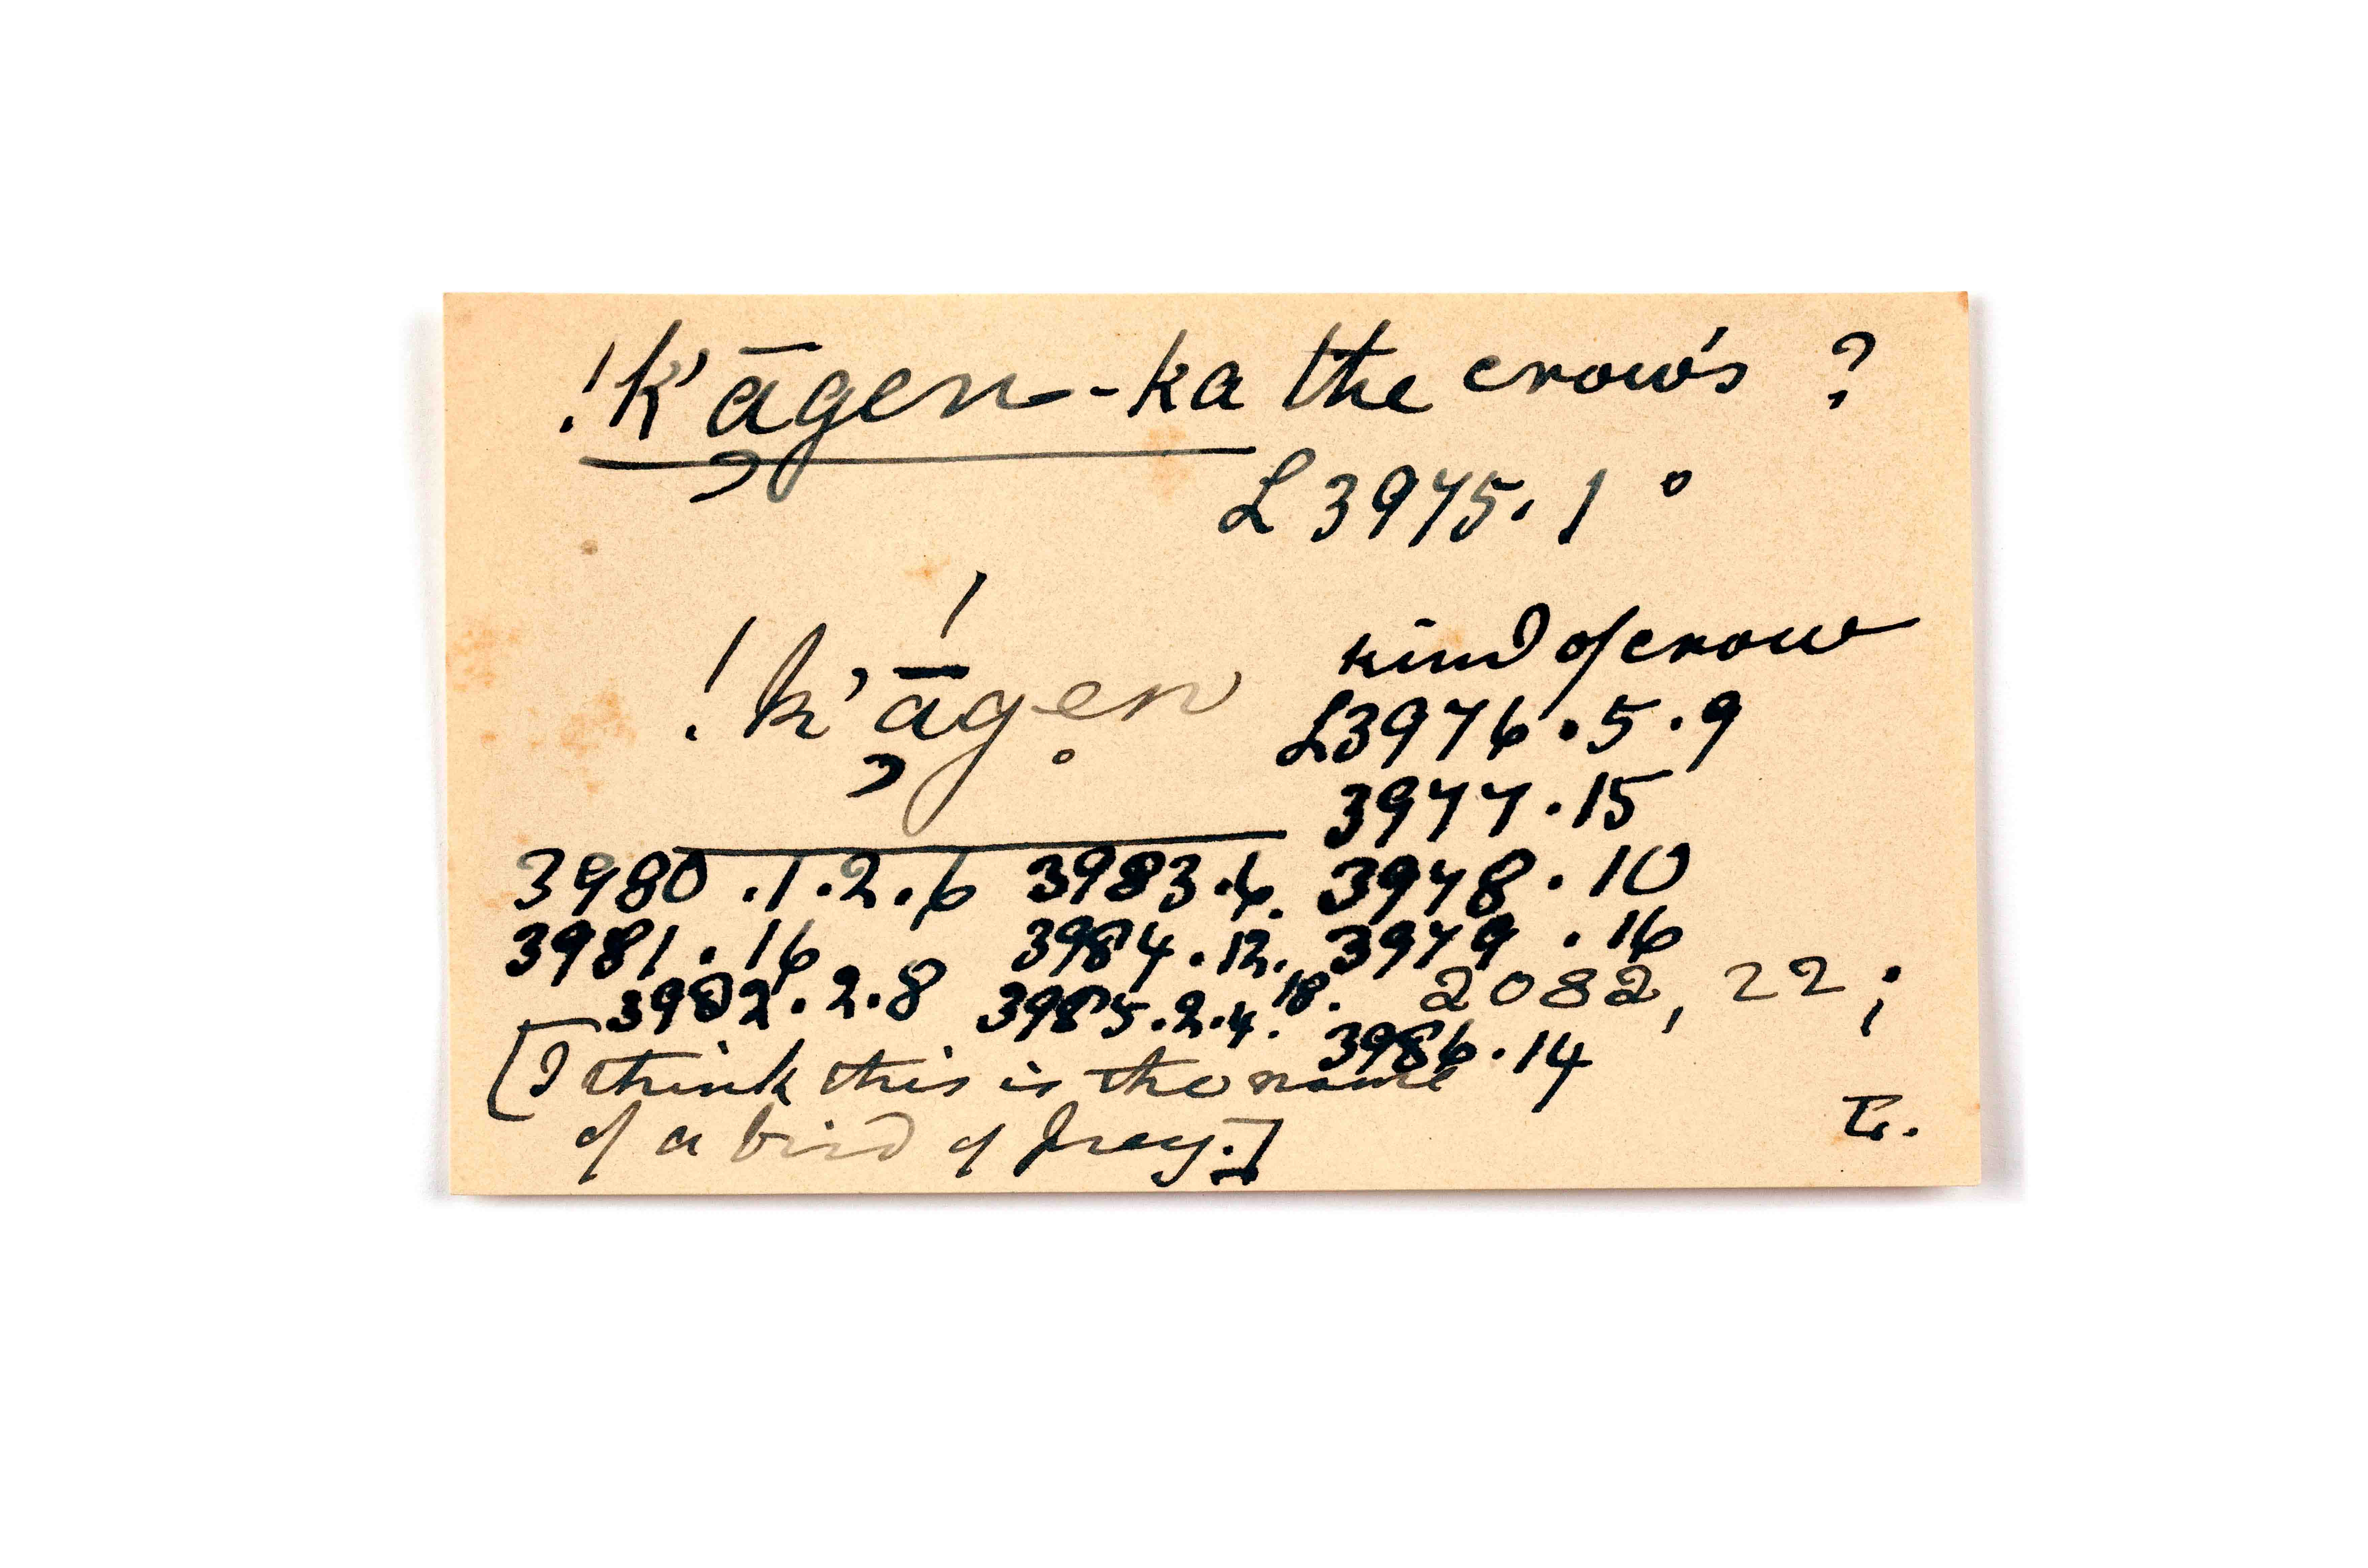 !k'ā̡gen-ka the crow's ?
L 3975.1°
!k'ā̡́gen̥ kind of crow
L3976.5.9
3977.15
3980.1.2.6 3983.6. 3978.10
3981.16 3984.12. 3979.16
3982.2.8 3985.2.4.18. 2082, 22;
3986.14
[I think this is the name
of a bird of prey.]